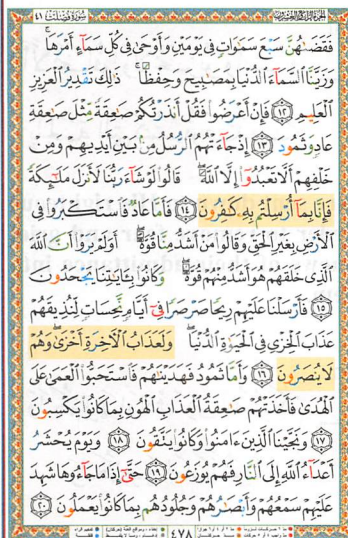 سورة فصلت ٤١
فَقَضَىٰهُنَّ سَبْعَ سَمَٰوَاتٍ فِى يَوْمَيْنِ وَأَوْحَىٰ فِى كُلِّ سَمَآءٍ أَمْرَهَا ۚ
وَزَيَّنَّا ٱلسَّمَآءَ ٱلدُّنْيَا بِمَصَٰبِيحَ وَحِفْظًا ۚ ذَٰلِكَ تَقْدِيرُ ٱلْعَزِيزِ
ٱلْعَلِيمِ ١٢ فَإِنْ أَعْرَضُوا۟ فَقُلْ أَنذَرْتُكُمْ صَٰعِقَةً مِّثْلَ صَٰعِقَةِ
عَادٍ وَثَمُودَ ١٣ إِذْ جَآءَتْهُمُ ٱلرُّسُلُ مِنۢ بَيْنِ أَيْدِيهِمْ وَمِنْ
خَلْفِهِمْ أَلَّا تَعْبُدُوٓا۟ إِلَّا ٱللَّهَ ۖ قَالُوا۟ لَوْ شَآءَ رَبُّنَا لَأَنزَلَ مَلَٰٓئِكَةً
فَإِنَّا بِمَآ أُرْسِلْتُم بِهِۦ كَٰفِرُونَ ١٤ فَأَمَّا عَادٌ فَٱسْتَكْبَرُوا۟ فِى
ٱلْأَرْضِ بِغَيْرِ ٱلْحَقِّ وَقَالُوا۟ مَنْ أَشَدُّ مِنَّا قُوَّةً ۖ أَوَلَمْ يَرَوْا۟ أَنَّ ٱللَّهَ
ٱلَّذِى خَلَقَهُمْ هُوَ أَشَدُّ مِنْهُمْ قُوَّةً ۖ وَكَانُوا۟ بِـَٔايَٰتِنَا يَجْحَدُونَ
١٥ فَأَرْسَلْنَا عَلَيْهِمْ رِيحًا صَرْصَرًا فِىٓ أَيَّامٍ نَّحِسَاتٍ لِّنُذِيقَهُمْ
عَذَابَ ٱلْخِزْىِ فِى ٱلْحَيَوٰةِ ٱلدُّنْيَا ۖ وَلَعَذَابُ ٱلْءَاخِرَةِ أَخْزَىٰ ۖ وَهُمْ
لَا يُنصَرُونَ ١٦ وَأَمَّا ثَمُودُ فَهَدَيْنَٰهُمْ فَٱسْتَحَبُّوا۟ ٱلْعَمَىٰ عَلَى
ٱلْهُدَىٰ فَأَخَذَتْهُمْ صَٰعِقَةُ ٱلْعَذَابِ ٱلْهُونِ بِمَا كَانُوا۟ يَكْسِبُونَ
١٧ وَنَجَّيْنَا ٱلَّذِينَ ءَامَنُوا۟ وَكَانُوا۟ يَتَّقُونَ ١٨ وَيَوْمَ يُحْشَرُ
أَعْدَآءُ ٱللَّهِ إِلَى ٱلنَّارِ فَهُمْ يُوزَعُونَ ١٩ حَتَّىٰٓ إِذَا مَا جَآءُوهَا شَهِدَ
عَلَيْهِمْ سَمْعُهُمْ وَأَبْصَٰرُهُمْ وَجُلُودُهُم بِمَا كَانُوا۟ يَعْمَلُونَ ٢٠
٤٧٨